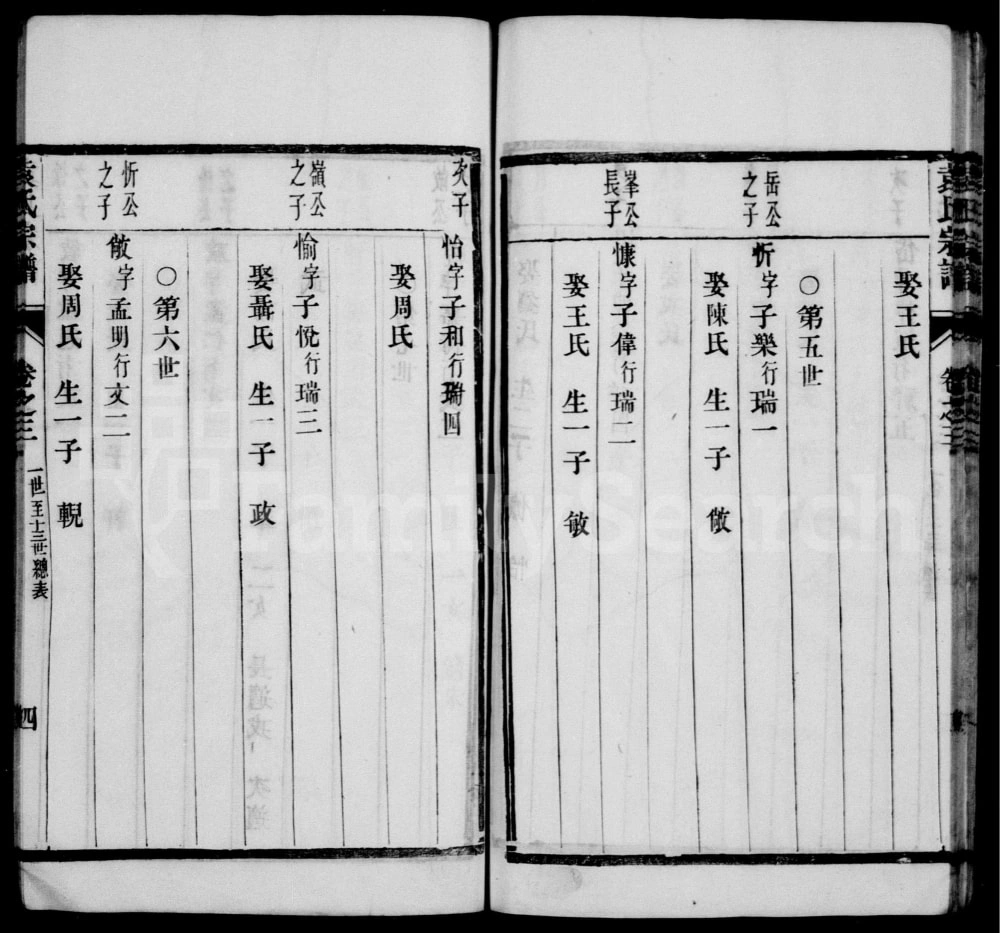 娶王氏
○第五世
岳公之子
忻字子樂行瑞一
娶陳氏 生一子 儆
峯公長子
慷字子偉行瑞二
娶王氏 生一子 敏
次子
怡字子和行瑞四
娶周氏
嶺公之子
愉字子悅行瑞三
娶聶氏 生一子 政
○第六世
忻公之子
儆字孟明行文二
娶周氏 生一子 輗
袁氏宗譜 卷之三 一世至十三世總表 四
FamilySearch